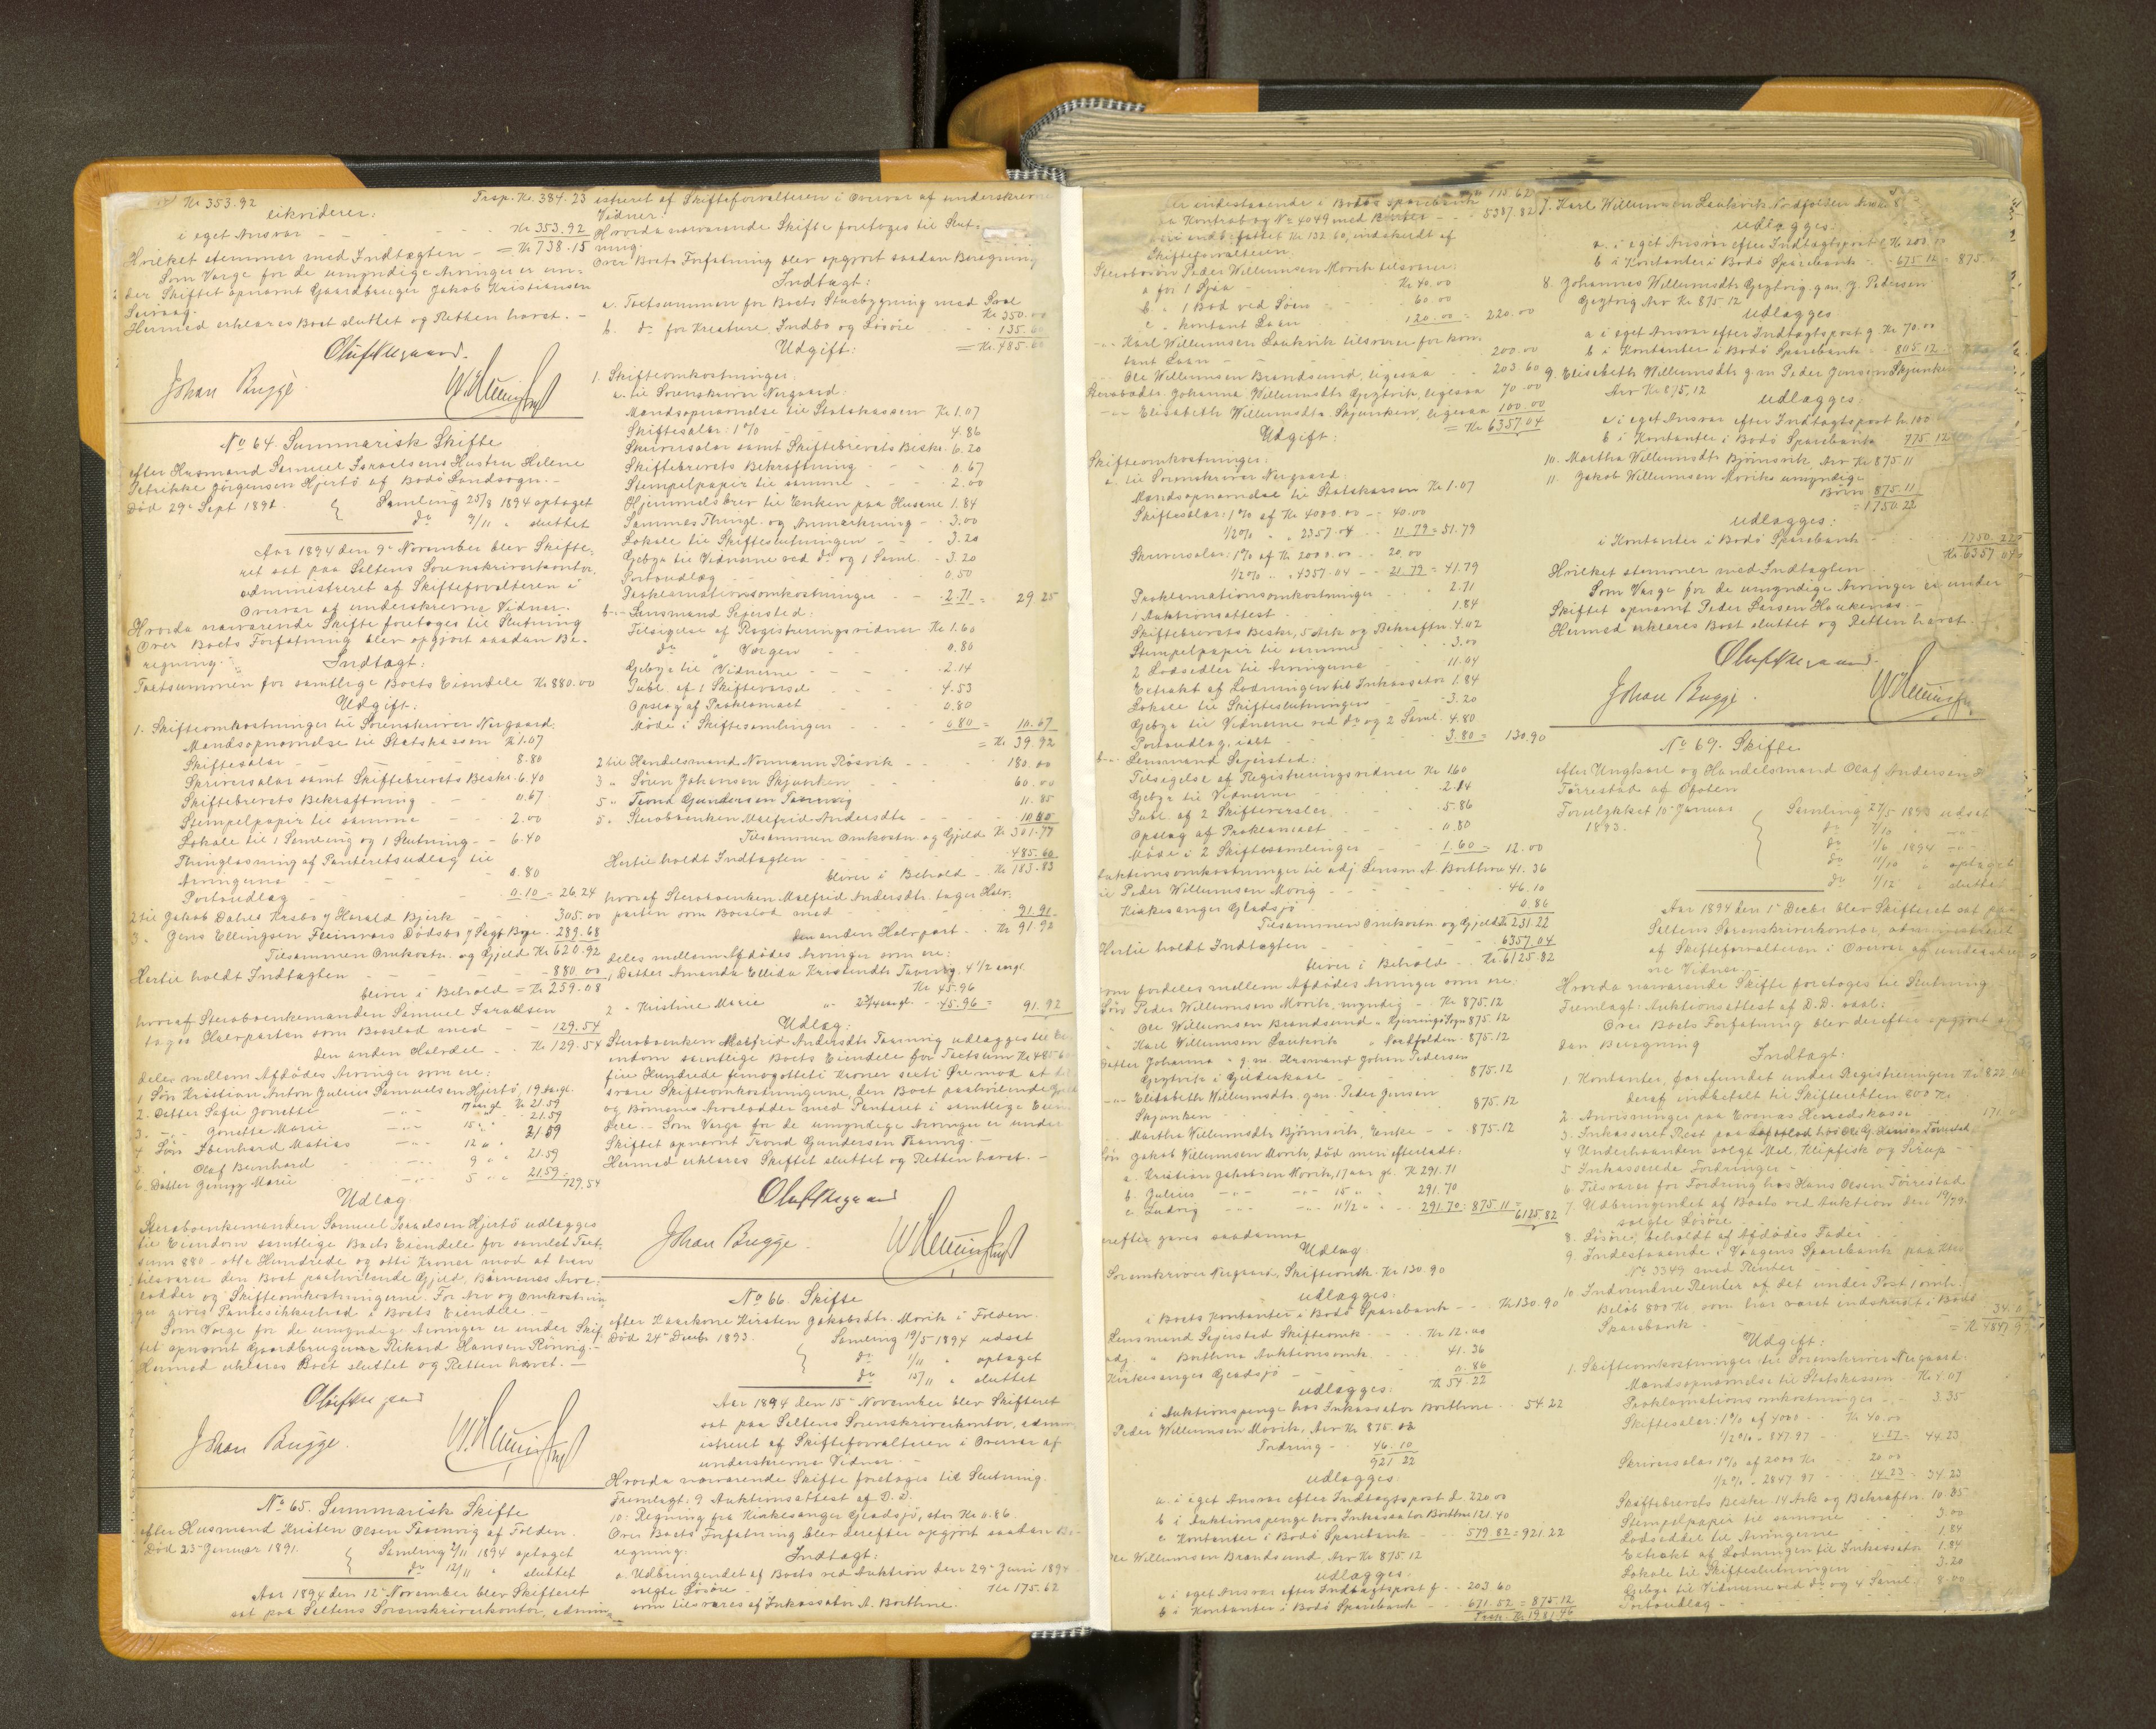 Kr 353.92 Trsp. Kr. 384.23
likviderer:
i eget Ansvar - - - Kr 353.92
Hvilket stemmer med Indtægten - = Kr 738.15
Som Værge for de umyndige Arvinger er un-
der Skiftet opnævnt Gaardbruger Jakob Kristiansen
Hermed erklæres Boet sluttet og Retten hævet. -
Johan Bugge
No 64. Summarisk Skifte
efter Husmand Samuel Israelsens Hustru Helene
Petrikke Jörgensen Hjertö af Bodö Landsogn. -
Död 29de Sept 1891. Samling 25/8 1894 optaget
do 9/11 " sluttet
Aar 1894 den 9de November blev Skifte-
ret sat paa Saltens Sorenskriverkontor,
administreret af Skifteforvalteren i
Overvær af underskrevne Vidner. -
Hvorda nærværende Skifte foretoges til Slutning
Over Boets Forfatning blev opgjort saadan Be-
regning. -
Indtægt:
Taxtsummen for samtlige Boets Eiendele Kr 880.00
Udgift:
1. Skifteomkostninger til Sorenskriver Nergaard.
Mandsopnævnelse til Statskassen Kr 1.07
Skiftesalær - - 8.80
Skriversalær samt Skiftebrevets Beskr. 6.40
Skiftebrevets Bekræftning - - 0.67
Stempelpapir til samme - - 2.00
Lokale til 1 Samling og 1 Slutning - - 6.40
Thinglæsning af Panteretsudlæg til
Arvingerne - - 0.80
Portoudlæg - - 0.10 = 26.24
2 til Jakob Dahls Krsbo v/ Harald Bjerk - - 305.00
3 " Jens Ellingsen Fleinværs Dödsbo v/ Sagf. Bye - 289.68
Tilsammen Omkostn. og Gjeld Kr 620.92
Hertil holdt Indtægten - - 880.00
bliver i Behold = Kr 259.08
hvoraf Sterboenkemanden Samuel Israelsen
tager Halvparten som Boeslod med - - 129.54
den anden Halvdel - - Kr 129.54
deles mellem Afdödes Arvinger som ere:
1 Sön Kristian Anton Julius Samuelsen Hjertö, 19 aar gl.
Kr 21.59
2. Datter Sofie Jonette - - 17 aar gl 21.59
3. - - Jonette Marie - - 15 " " 21.59
4 Sön Ebenhard Matias - - 12 " " 21.59
5. " Olaf Bernhard - - 9 " "
6. Datter Jenny Marie - - 5 " " 21.59 = 129.54
Udlæg
Sterboenkemanden Samuel Israelsen Hjertö udlægges
til Eiendom samtlige Boets Eiendele for samlet Taxt-
sum 880 - otte Hundrede og otti Kroner mod at han
tilsvarer den Boet paahvilende Gjeld, Börnenes Arve-
lodder og Skifteomkostningerne. For Arv og Omkostnin-
ger gives Pantesikkerhed i Boets Eiendele. -
Som Værge for de umyndige Arvinger er under Skif-
tet opnævnt Gaardbruger Rikard Hansen Rönvig. -
Hermed erklæres Boet sluttet og Retten hævet. -
Johan Bugge.
No 65. Summarisk Skifte
efter Husmand Kristen Olsen Taarnvig af Folden.
Död 23de Januar 1891. Samling 2/11 1894 optaget
do 12/11 " sluttet
Aar 1894 den 12te November blev Skifteret
sat paa Saltens Sorenskriverkontor, admin-
istreret af Skifteforvalteren i Overvær af underskrevne
Vidner.
Hvorda nærværende Skifte foretoges til Slut-
ning.
Over Boets Forfatning blev opgjort saadan Beregning
Indtægt:
a. Taxtsummen for Boets Stuebygning med Sval
Kr 350.00
b. do for Kreature, Indbo og Lösöre - 135.60
= Kr. 485.60
Udgift:
1. Skifteomkostninger.
a. til Sorenskriver Nergaard:
Mandsopnævnelse til Statskassen Kr 1.07
Skiftesalær: 1% - - 4.86
Skriversalær samt Skiftebrevets Beskr. 6.20
Skiftebrevets Bekræftning - - 0.67
Stempelpapir til samme - - 2.00
Hjemmelsbrev til Enken paa Husene 1.84
Sammes Thingl. og Anmærkning - - 3.00
Lokale til Skifteslutningen - - 3.20
Gebyr til Vidnerne ved do og 1 Saml. - 3.20
Portoudlæg - - 0.50
Proklamationsomkostninger - - 2.71 = 29.25
b. - Lensmand Sejersted:
Tilsigelse af Registreringsvidner Kr 1.60
do " Værgen - 0.80
Gebyr til Vidnerne - - 2.14
Publ. af 1 Skiftevarsel - - 4.53
Opslag af Proklamaet - - 0.80
Möde i Skiftesamlingen - - 0.80 = 10.67
= Kr. 39.92
2 til Handelsmand Normann Rösvik - - 180.00
3 " Sören Johansen Skjunken - - 60.00
5 " Trond Gundersen Taarnvig 11.85
5. " Sterboenken Malfrid Andersdtr - - 10.00
Tilsammen Omkostn. og Gjeld Kr 301.77
Hertil holdt Indtægten - - 485.60
bliver i Behold - Kr 183.83
hvoraf Sterboenken Malfrid Andersdtr. tager Halv-
parten som Boeslod med - - 91.91
den anden Halvpart - - Kr 91.92
deles mellem Afdödes Arvinger som ere:
1 Datter Amanda Ellida Kristensdtr Taarnvig. 4 1/2 aar gl.
Kr 45.96
2 - Kristine Marie " 2 3/4 aar gl. - 45.96 = 91.92
Udlæg:
Sterboenken Malfrid Andersdtr. Taarnvig udlægges til Ei-
endom samtlige Boets Eiendele for Taxtsum Kr 485.60
fire Hundrede femogotteti Kroner sexti Öre mod at til-
svare Skifteomkostningerne, den Boet paahvilende Gjeld
og Börnenes Arvelodder med Panteret i samtlige Eien-
dele. - Som Værge for de umyndige Arvinger er under
Skiftet opnævnt Trond Gundersen Taarnvig. -
Hermed erklæres Skiftet sluttet og Retten hævet. -
Johan Bugge.
No 66. Skifte
efter Kaarkone Kirsten Jakobsdtr. Mörvik i Folden.
Död 24de Decbr 1893. Samling 19/5 1894 udsat
do 1/11 " optaget
do 15/11 " sluttet
Aar 1894 den 15de November blev Skifteret
sat paa Saltens Sorenskriverkontor, admin-
istreret af Skifteforvalteren i Overvær af
underskrevne Vidner. -
Hvorda nærværende Skifte foretoges til Slutning.
Fremlagt: 9 Auktionsattest af D. D.
10: Regning fra Kirkesanger Gladsjö, stor Kr 0.86.
Over Boets Forfatning blev derefter opgjort saadan Be-
regning:
Indtægt:
a. Udbringendet af Boets ved Auktion den 29de Juni 1894
solgte Lösöre - - Kr 175.62
som tilsvares af Inkassator A. Borthne.
Kr 175.62
indestaaende i Bodö Sparebank
Kontrabog No 4049 med Renter - - 5387.82
Skifteforvalteren.
Sterbosön Peder Willumsen Mörvik tilsvarer:
a for 1 Spaa - Kr 40.00
b " 1 Bod ved Söen - 60.00
c " kontant Laan - 120.00 = 220.00
- - Karl Willumsen Laukvik tilsvarer for kon-
tant Laan - - 200.00
Ole Willumsen Brandsund, ligesaa - - 203.60
Sterbodtr. Johanna Willumsdtr Gegtvik, ligesaa 70.00
- - Elisabeth Willumsdtr. Skjunken, ligesaa 100.00
= Kr 6357.04
Udgift:
Skifteomkostninger:
a. til Sorenskriver Nergaard.
Mandsopnævnelse til Statskassen Kr 1.07
Skiftesalær: 1% af Kr 4000.00 - - 40.00
1/2% " " 2357.04 - - 11.79 = 51.79
Skriversalær: 1% af Kr 2000.00 - - 20.00
1/2% " " 4357.04 - - 21.79 = 41.79
Proklamationsomkostninger - - 2.71
1 Auktionsattest - - 1.84
Skiftebrevets Beskr, 5 Ark og Bekræftn. 4.02
Stempelpapir til samme - - 3.00
2 Lodsedler til Arvingerne - - 11.04
Extrakt af Lodningen til Inkassator 1.84
Lokale til Skifteslutningen - - 3.20
Gebyr til Vidnerne ved do og 2 Saml. 4.80
Portoudlæg, ialt - - 3.80 = 130.90
b. - Lensmand Sejersted:
Tilsigelse af Registreringsvidner Kr 1.60
Gebyr til Vidnerne - - 2.14
Publ. af 2 Skiftevarsler - - 5.86
Opslag af Proklamaet - - 0.80
Möde i 2 Skiftesamlinger - - 1.60 = 12.00
Auktionsomkostninger til adj. Lensm A. Borthne 41.36
til Peder Willumsen Mörvig - - 46.10
Kirkesanger Gladsjö 0.86
Tilsammen Omkostn. og Gjeld Kr 231.22
Hertil holdt Indtægten - - 6357.04
bliver i Behold - - Kr. 6125.82
som fordeles mellem Afdödes Arvinger som ere:
Sön Peder Willumsen Mörvik, myndig - Kr 875.12
" Ole Willumsen Brandsund " Kjerringö Sogn 875.12
" Karl Willumsen Laukvik " Nordfolden - 875.12
Datter Johanna " g. m. Husmand Johan Pedersen
Gegtvik i Gildeskaal - - 875.12
- - Elisabeth Willumsdtr. gm. Peder Jensen
Skjunken - - 875.12
- - Martha Willumsdtr Björnsvik, Enke - - 875.12
Sön Jakob Willumsen Mörvik, död men efterladt:
a. Kristian Jakobsen Mörvik, 17 aar gl. Kr 291.71
b. Julius - - - - 15 " " 291.70
c. Ludvig - - - - 11 1/2 " " 291.70 = 875.11 = 6125.82
Udlæg:
Sorenskriver Nergaard, Skifteomk. Kr 130.90
udlægges:
i Boets Kontanter i Bodö Sparebank - - Kr 130.90
Lensmand Sejersted Skifteomk - - Kr 12.00
adj. " Borthne Auktionsomk. - 41.36
Kirkesanger Gladsjö - 0.86
Kr 54.22
udlægges:
i Auktionspenge hos Inkassator Borthne - - 54.22
Peder Willumsen Mörvik, Arv Kr 875.12
Fordring - - 46.10
921.22
udlægges:
a. i eget Ansvar efter Indtægtspost d. 220.00
b i Auktionspenge hos Inkassator Borthne 121.40
c Kontanter i Bodö Sparebank - - 579.82 = 921.22
Ole Willumsen Brandsund, Arv Kr 875.12
udlægges:
a i eget Ansvar efter Indtægtspost f - - 203.60
b i Kontanter i Bodö Sparebank - - 671.52 = 875.12
Trsp. Kr. 1981.46
7. Karl Willumsen Laukvik Nordfolden Arv Kr 8
udlægges:
a. i eget Ansvar efter Indtægtspost e Kr 200.00
b i Kontanter i Bodö Sparebank - 675.12 = 875
8. Johannes Willumsdtr Gegtvig. gm. J. Pedersen
Gegtvig Arv Kr 875.12
udlægges
a i eget Ansvar efter Indtægtspost g. Kr 70.00
b i Kontanter i Bodö Sparebank - 805.12
9. Elisabeth Willumsdtr g. m. Peder Jensen Skjunken
Arv Kr 875.12
udlægges:
a i eget Ansvar efter Indtægtspost h. 100
b i Kontanter i Bodö Sparebank 775.12
10. Martha Willumsdtr Björnsvik, Arv Kr 875.11
11. Jakob Willumsen Mörviks umyndige
Börn 875.11
= 1750.22
udlægges:
i Kontanter i Bodö Sparebank - - 1750.22
Kr. 6357.04
Hvilket stemmer med Indtægten
Som Værge for de umyndige Arvinger er under
Skiftet opnævnt Peder Larsen Haukenæs. -
Hermed erklæres Boet sluttet og Retten hævet. -
Johan Bugge.
No 69. Skifte
efter Ungkarl og Handelsmand Olaf Andersen
Törrestad af Ofoten
Forulykket 10de Januar 1893. Samling 27/5 1893 udsat
do 7/10 " - " -
do 1/6 1894 - " -
do 11/10 " optaget
do 1/12 " sluttet
Aar 1894 den 1ste Decbr blev Skifteret sat paa
Saltens Sorenskriverkontor, administreret
af Skifteforvalteren i Overvær af underskrev-
ne Vidner. -
Hvorda nærværende Skifte foretoges til Slutning
Fremlagt: Auktionsattest af D. D. saal:
Over Boets Forfatning blev derefter opgjort saa-
dan Beregning
Indtægt:
1. Kontanter, forefundet under Registreringen Kr 822.
deraf indbetalt til Skifteretten 800 Kr.
2. Anvisninger paa Evenæs Herredskasse - 171.
3. Inkasseret Rest paa hos Ole G. Hansen Törrestad
4 Underhaanden solgt Mel, Klipfisk og Sirup -
5 Inkasserede Fordringer -
6 Tilsvarer for Fordring hos Hans Olsen Törrestad
7. Udbringendet af Boets ved Auktion den
solgte Lösöre
8. Lösöre, beholdt af Afdödes Fader -
9. Indestaaende i Vaagens Sparebank paa
No 3349 med Renter -
10 Indvundne Renter af det under Post 1 omh.
Belöb 800 Kr. som har været indskudt i Bodö
Sparebank - 34.
= Kr 4847.97
Udgift:
1. Skifteomkostninger til Sorenskriver Nergaard.
Mandsopnævnelse til Statskassen - Kr 1.07
Proklamationsomkostninger - - 3.35
Skiftesalær: 1% af 4000 - - Kr 40.00
1/2% " 847.97 - - 4.23 = 44.23
Skriversalær 1% af 2000 Kr - - 20.00
1/2% " 2847.97 - - 14.23 = 34.23
Skiftebrevets Beskr. 14 Ark og Bekræftn. 10.85
Stempelpapir til samme - - 3.00
Lodseddel til Arvingerne - - 1.84
Extrakt af Lodningen til Inkassator 1.84
Lokale til Skifteslutningen - - 3.20
Gebyr til Vidnerne ved do og 4 Saml. - 8.00
Portoudlæg - -